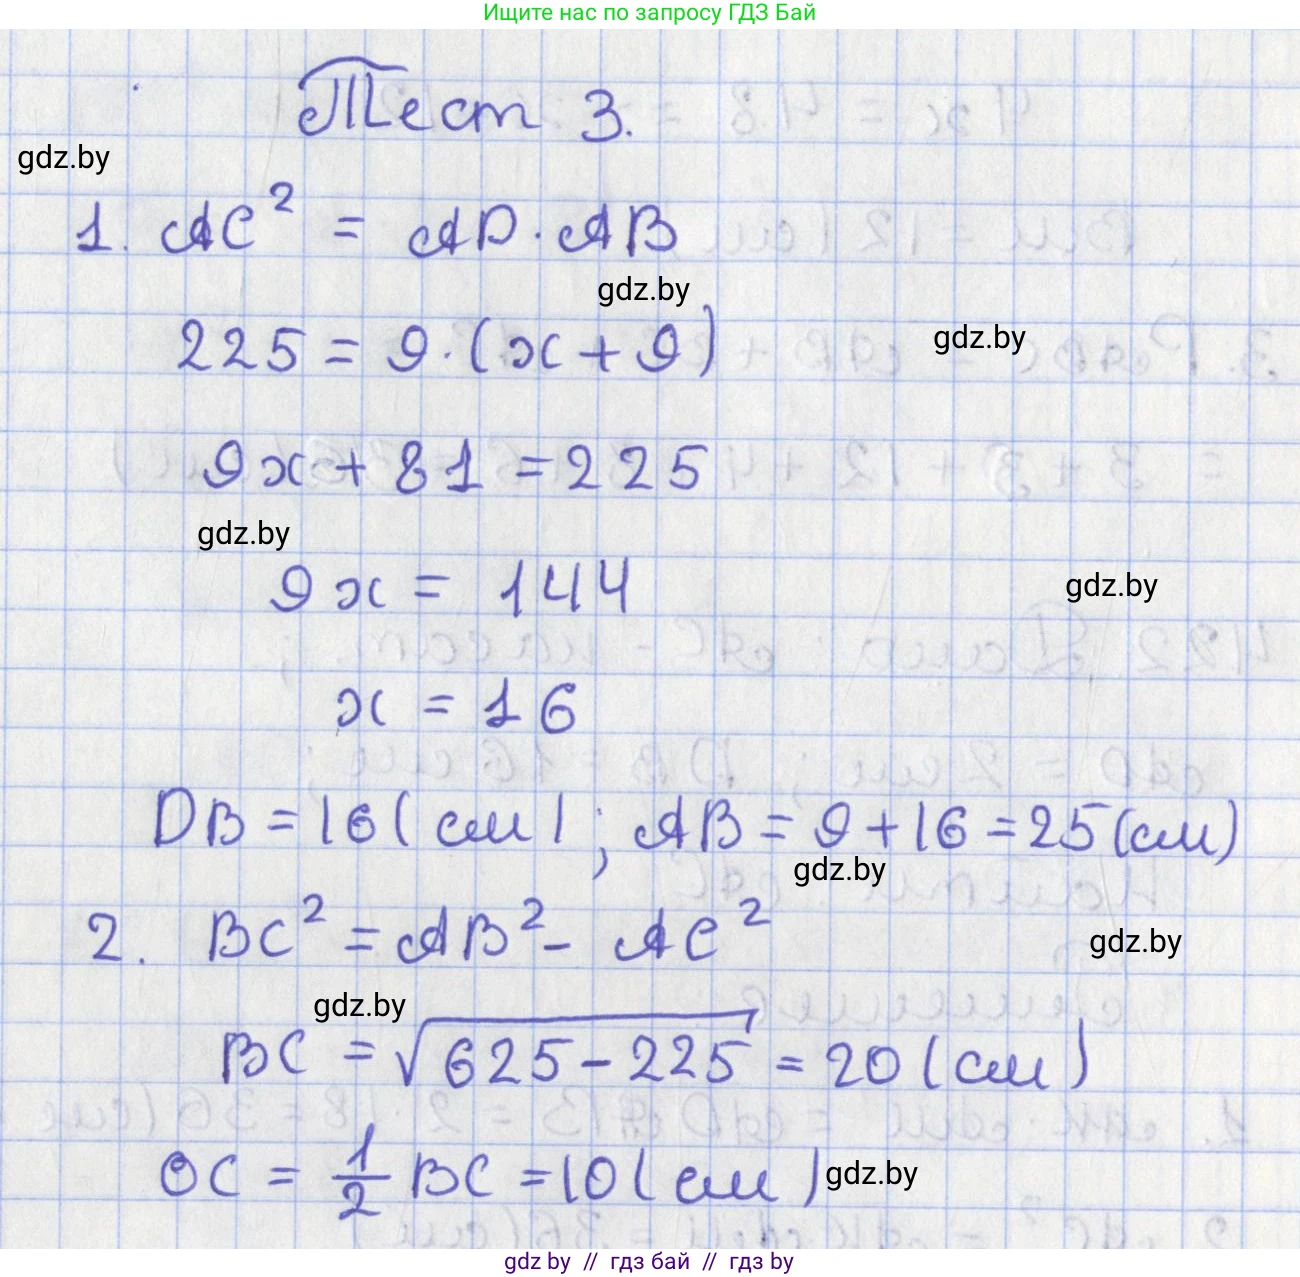 Ищите нас по запросу ГДЗ Бай
Тест 3.
gdz.by
1. AC² = AD · AB
gdz.by
225 = 9 · (x + 9)
gdz.by
9x + 81 = 225
gdz.by
9x = 144
gdz.by
x = 16
DB = 16 (см); AB = 9 + 16 = 25 (см)
gdz.by
2. BC² = AB² - AC²
gdz.by
gdz.by
BC = √625 - 225 = 20 (см)
OC = 1/2 BC = 10 (см)
gdz.by
gdz by // гдз бай // гдз by